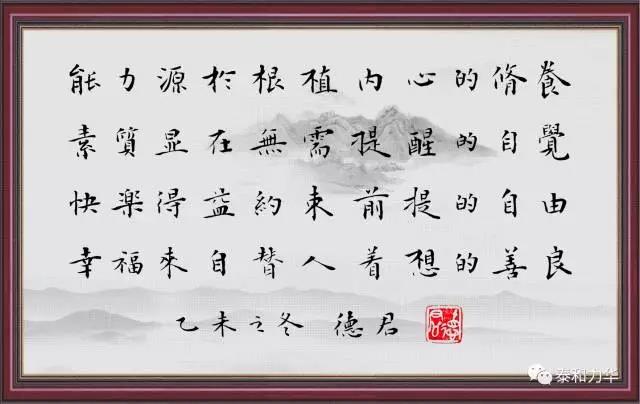 能力源於根植内心的脩養
素質显在無需提醒的自覺
快楽得益約束前提的自由
幸福來自替人着想的善良
乙未之冬 德君
泰和力华